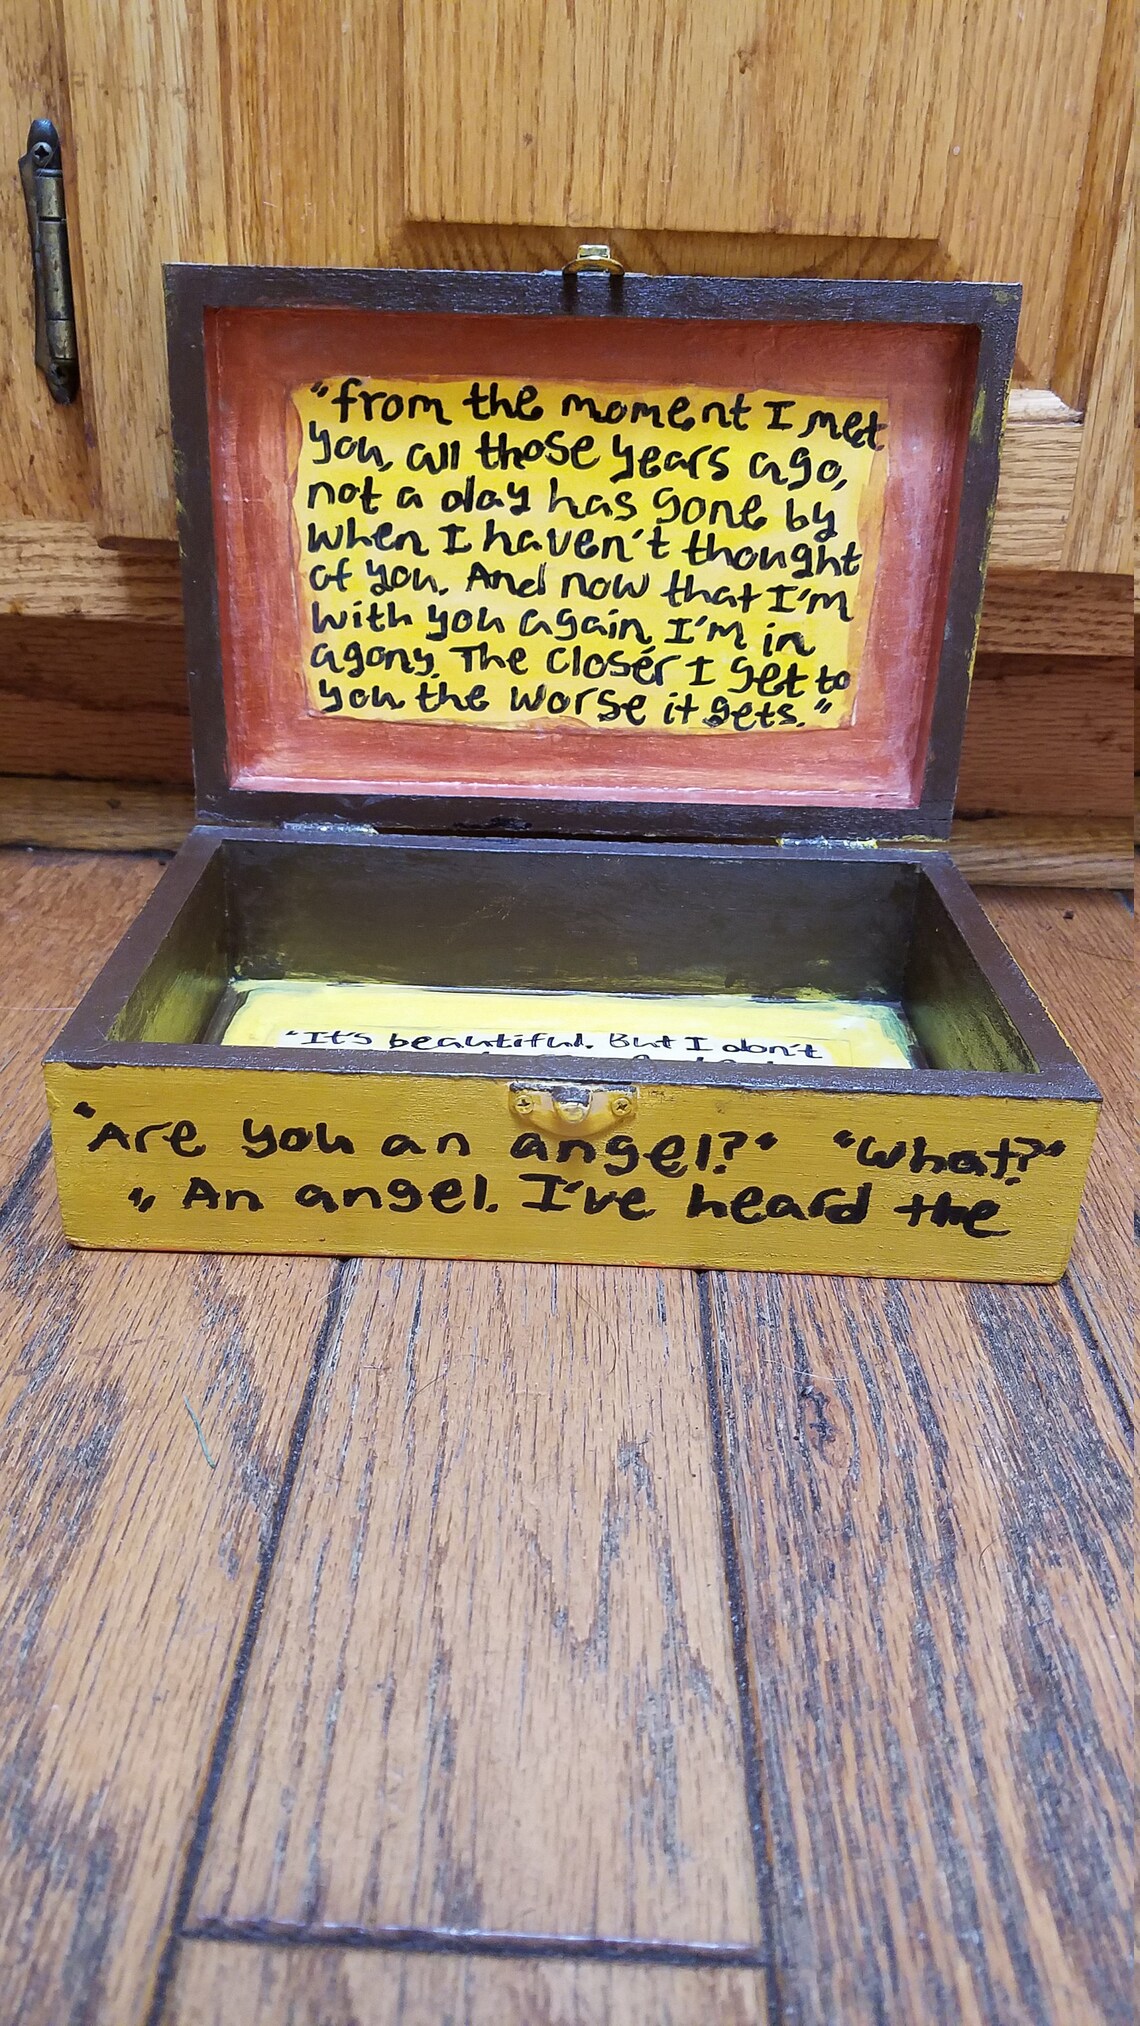 "from the moment I met
you, all those years ago,
not a day has gone by
when I haven't thought
of you. And now that I'm
with you again, I'm in
agony. The closer I get to
you, the worse it gets."
"It's beautiful. But I don't
"Are you an angel?" "What?"
"An angel. I've heard the